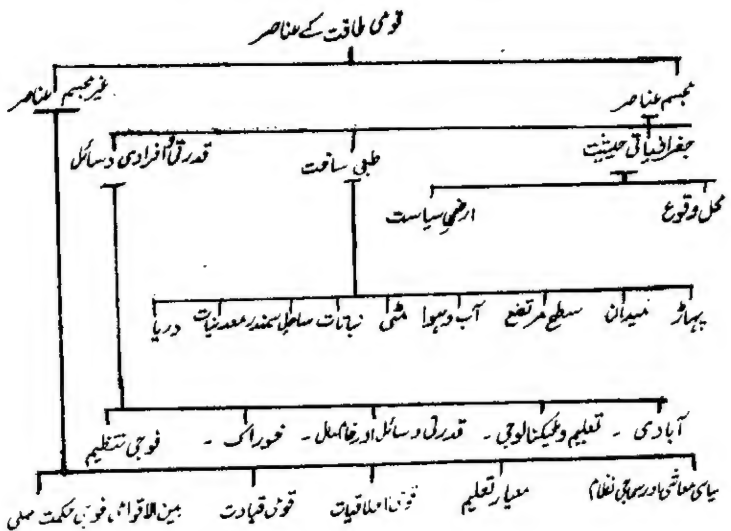 قومی طاقت کے عناصر
مجسم عناصر غیر مجسم عناصر
جغرافیائی حیثیت طبی ساخت قدرتی و افرادی وسائل
محل وقوع ارضی سیاست
پہاڑ میدان سطح مرتفع آب و ہوا مٹی نباتات ساحل سمندر معدنیات دریا
آبادی - تعلیم و ٹیکنالوجی - قدرتی وسائل اور خام مال - خوراک - فوجی تنظیم
سیاسی معاشی اور سماجی نظام معیار تعلیم قومی اخلاقیات قومی قیادت بین الاقوامی فوجی حکمت عملی